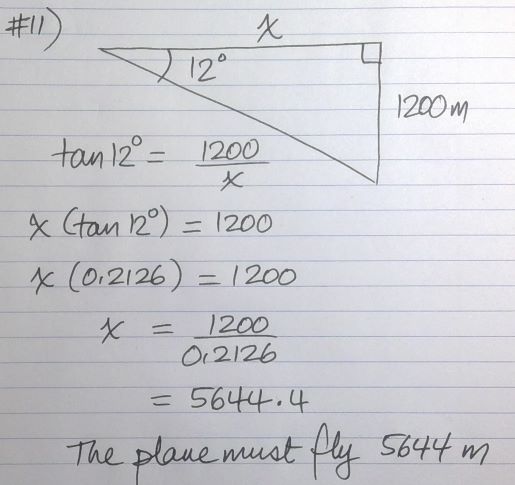 #11)
x
12°
1200m
tan 12° = 1200/x
x (tan 12°) = 1200
x (0.2126) = 1200
x = 1200/0.2126
= 5644.4
The plane must fly 5644 m